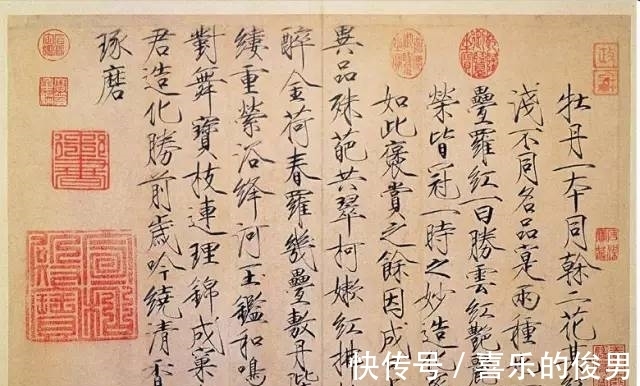 牡丹一本同幹二花其
淺不同名品寔兩種
疊羅紅一曰勝雲紅艷麗
榮皆冠一時之妙造
如此褒賞之餘因成
異品殊葩共翠柯嫩紅拂
醉金荷春羅幾疊敷丹陛
縷重縈浴絳河玉鑑和鳴
對舞寶枝連理錦成窠
君造化勝前歲吟繞清香
琢磨
快传号 / 喜乐的俊男